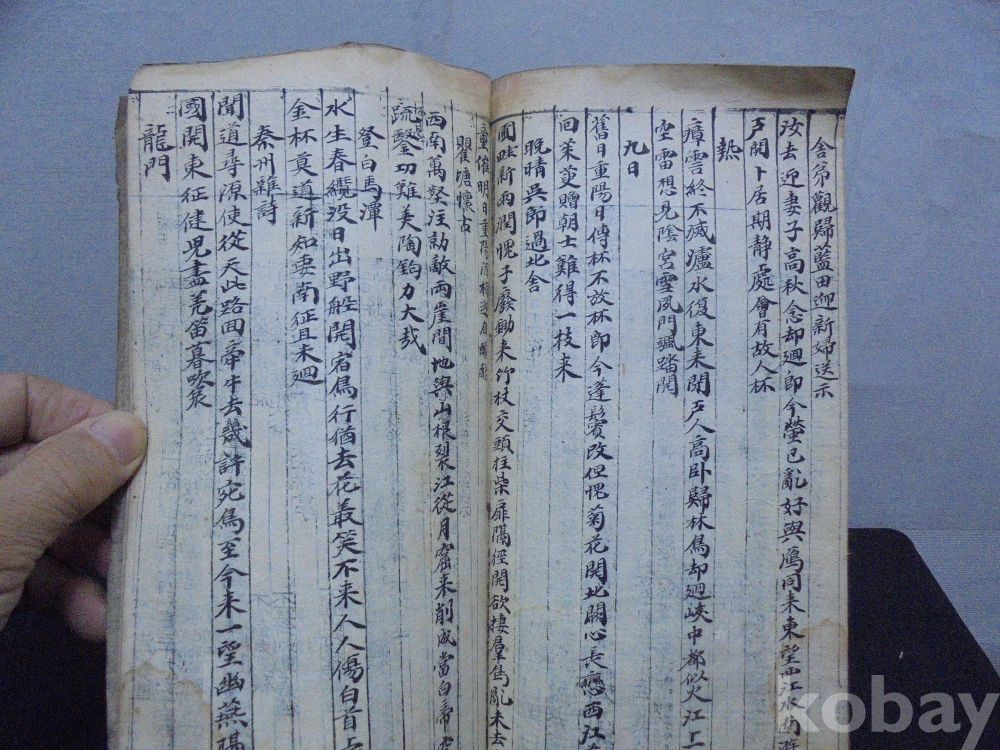 舍弟觀歸藍田迎新婦送示
汝去迎妻子高秋念却迴即今螢已亂好與鴈同来東望西江水南
戶開卜居期静處會有故人杯
熱
瘴雲終不滅瀘水復東来閉戶人高卧歸林鳥却迴峽中都似火江上
空雷想見陰宮雪風門颯踏開
九日
舊日重陽日傳杯不放杯即今蓬鬢改但愧菊花開北闕心長戀西江
回茱萸贈朝士難得一枝来
晚晴吳郎過北舍
圃畦新雨潤愧子廢鋤来竹杖交頭拄柴扉隔徑開欲棲羣鳥亂未去
童催明日重陽酒相迎自醱醅
瞿塘懷古
西南萬壑注勍敵兩崖間地與山根裂江從月窟来削成當白帝空
疏鑿功雖美陶鈞力大哉
登白馬潭
水生春纜没日出野船開宿鳥行猶去花叢笑不来人人傷白首
金杯莫道新知妻南征且未迴
秦州雜詩
聞道尋源使從天此路回牽牛去幾許宛馬至今来一望幽燕隔
國開東征健兒盡羌笛暮吹哀
龍門
kobay